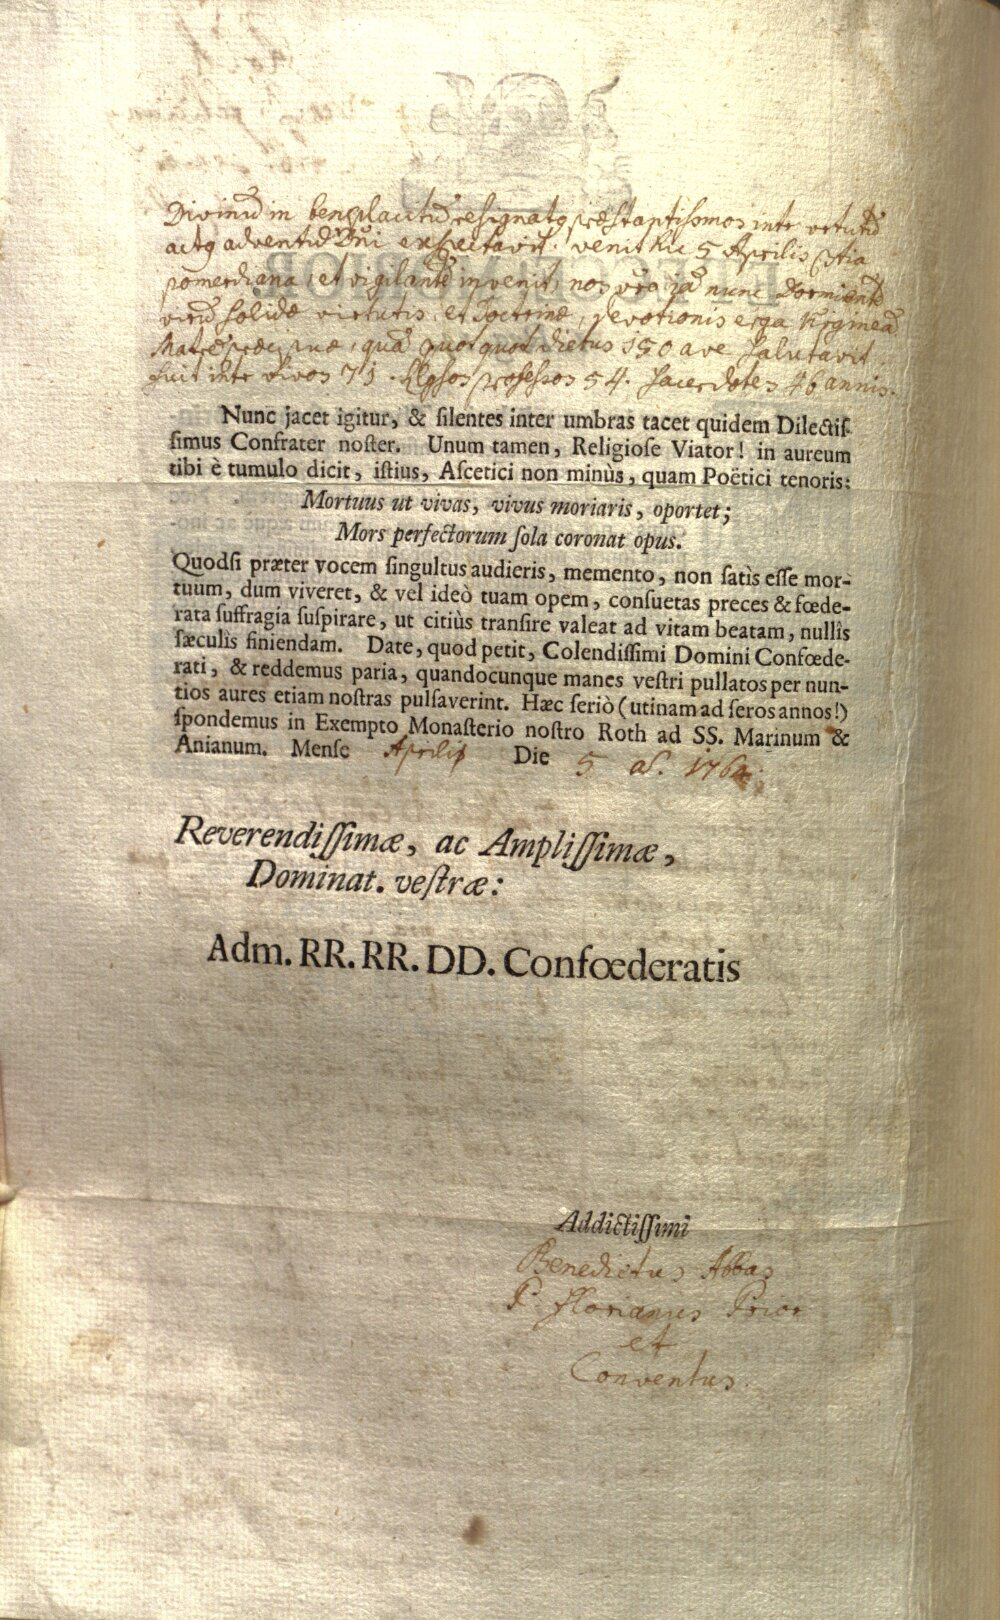 Divinũ in beneplacitũ resignatq præstantissimos inte virtutũ
actq adventũ Dñi expectavit. venit hic 5 Aprilis
pomeridiana, et vigilantẽ invenit, nos vẽo jã nunc Dormientẽ
virũ solidæ virtutis, et Doctrinæ, devotionis erga Virgineã
Matrẽ præcipuæ, quã quot quot diebus 150 ave salutavit
fuit inte vivos 71. professos 54. Sacerdotes 46 annis.
Nunc jacet igitur, & silentes inter umbras tacet quidem Dilectiſ-
ſimus Confrater noſter. Unum tamen, Religioſe Viator! in aureum
tibi è tumulo dicit, iſtius, Aſcetici non minùs, quam Poëtici tenoris:
Mortuus ut vivas, vivus moriaris, oportet;
Mors perfectorum ſola coronat opus.
Quodſi præter vocem ſingultus audieris, memento, non ſatìs eſſe mor-
tuum, dum viveret, & vel ideò tuam opem, conſuetas preces & fœde-
rata ſuffragia ſuſpirare, ut citiùs tranſire valeat ad vitam beatam, nullîs
ſæculîs finiendam. Date, quod petit, Colendiſſimi Domini Confœde-
rati, & reddemus paria, quandocunque manes veſtri pullatos per nun-
tios aures etiam noſtras pulſaverint. Hæc ſeriò (utinam ad ſeros annos!)
ſpondemus in Exempto Monaſterio noſtro Roth ad SS. Marinum &
Anianum. Menſe Aprilis Die 5 aõ. 1764.
Reverendiſſimæ, ac Ampliſſimæ,
Dominat. veſtræ:
Adm. RR. RR. DD. Confœderatis
Addictiſſimi
Benedictus Abbas
P. Florianus Prior
et
Conventus.